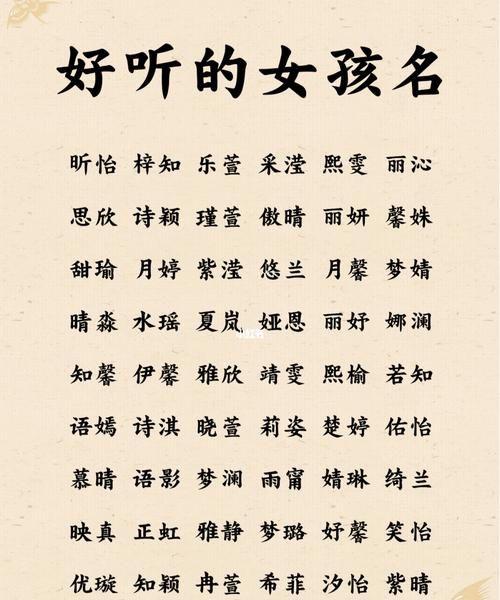 好听的女孩名
昕怡 梓知 乐萱 采滢 熙雯 丽沁
思欣 诗颖 瑾萱 傲晴 丽妍 馨姝
甜瑜 月婷 紫滢 悠兰 月馨 梦婧
晴淼 水瑶 夏岚 娅恩 丽妤 娜澜
知馨 伊馨 雅欣 靖雯 熙榆 若知
语嫣 诗淇 晓萱 莉姿 楚婷 佑怡
慕晴 语影 梦澜 雨甯 婧琳 绮兰
映真 正虹 雅静 梦璐 妤馨 笑怡
优璇 知颖 冉萱 希菲 汐怡 紫晴